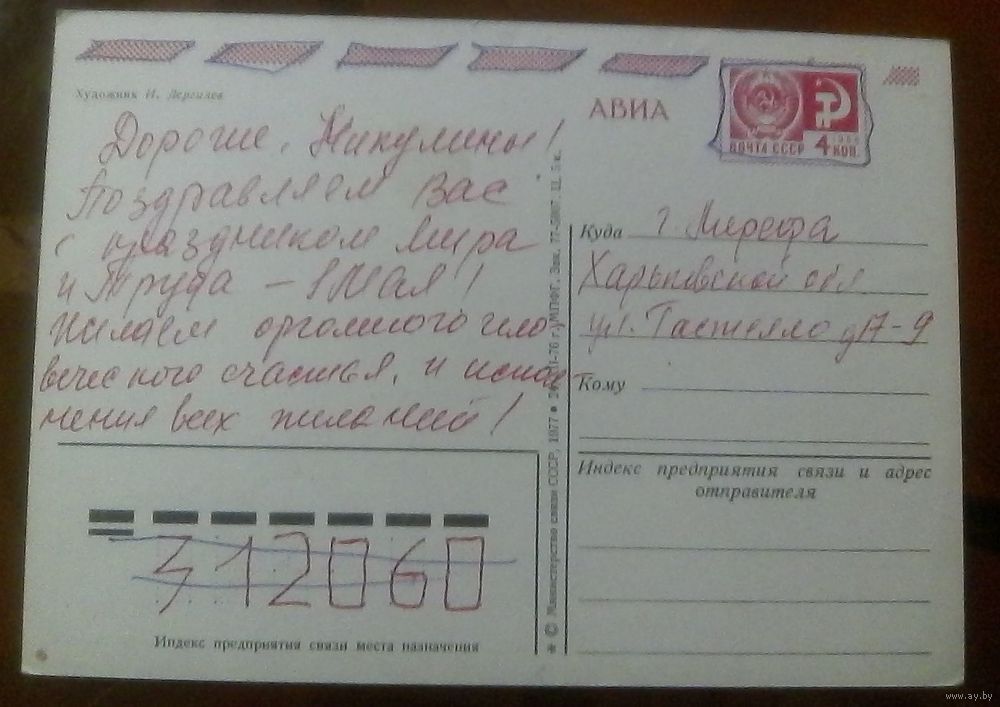 Художник И. Дергилев
АВИА
ПОЧТА СССР 4 КОП.
Дорогие, Никулины!
Поздравляем Вас
с праздником Мира
и Труда – 1 Мая!
Желаем огромного чело
веческого счастья, и испол
нения всех желаний!
Куда г. Мерефа
Харьковской обл
ул. Гастелло д 17-9
Кому
Индекс предприятия связи и адрес
отправителя
312060
Индекс предприятия связи места назначения
* © Министерство связи СССР, 1977 *
МПФГ. Зак. Ц. 5 к.
www.ay.by